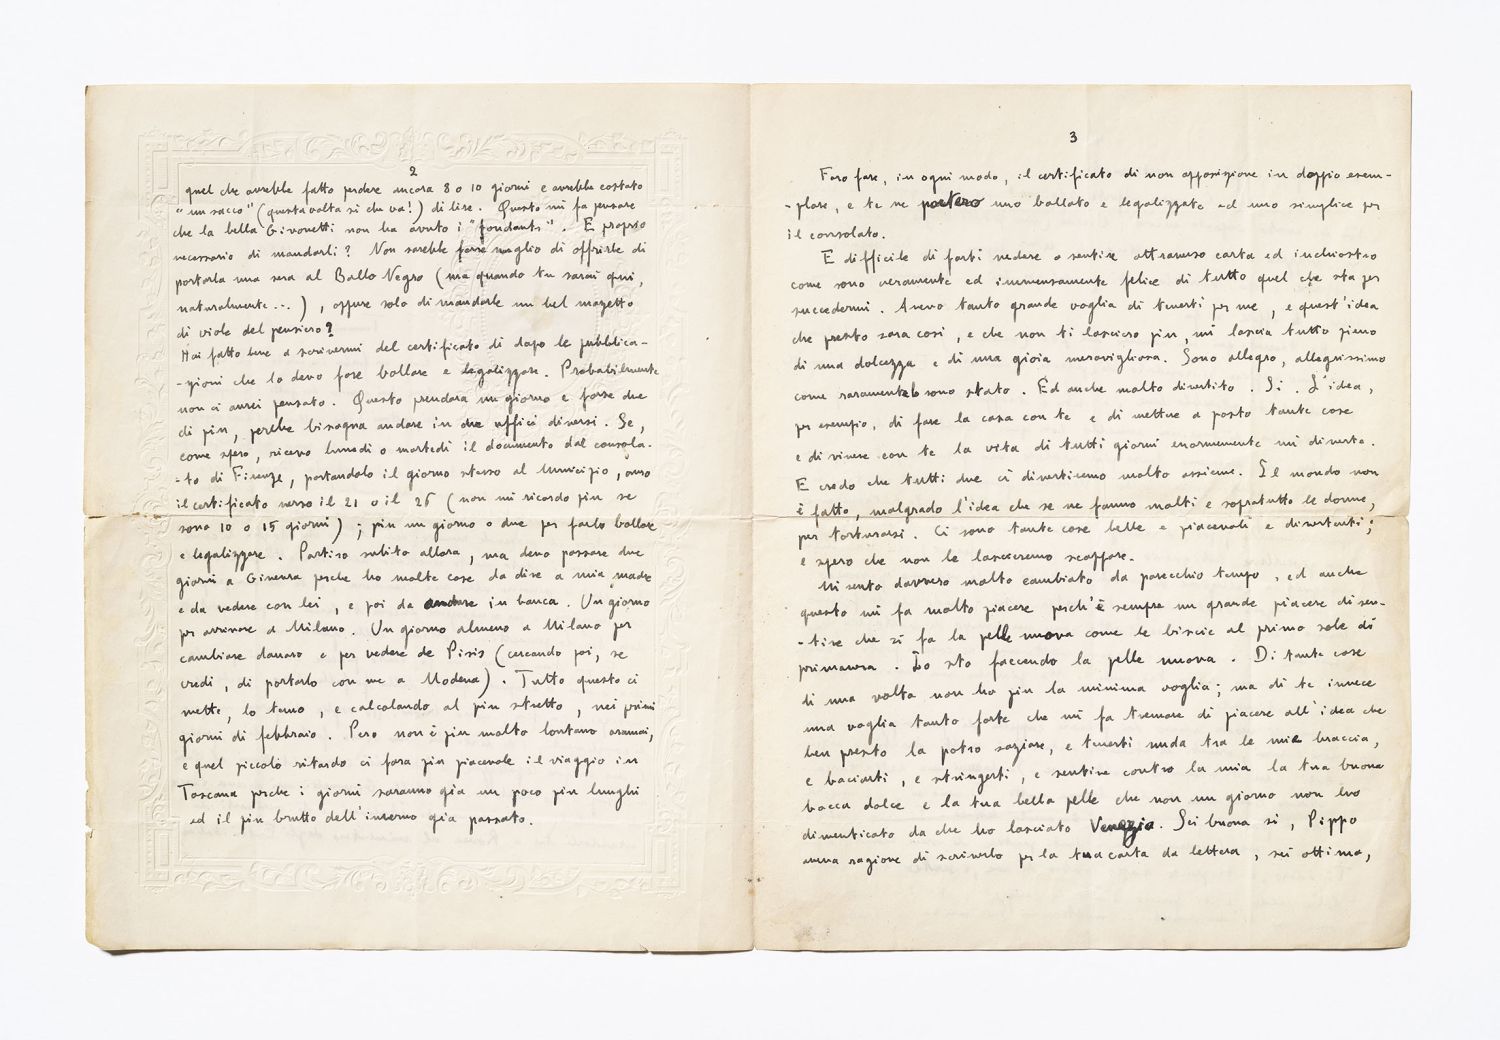 2
quel che avrebbe fatto perdere ancora 8 o 10 giorni e avrebbe costato
"un sacco" (questa volta si che va!) di lire. Questo mi fa pensare
che la bella Givonetti non ha avuto i "fondants". E proprio
necessario di mandarli? Non sarebbe forse meglio di offrirle di
portarla una sera al Ballo Negro (ma quando tu sarai qui,
naturalmente...), oppure solo di mandarle un bel mazzetto
di viole del pensiero?
Hai fatto bene a scrivermi del certificato di dopo le pubblica-
-zioni che lo devo fare bollare e legalizzare. Probabilmente
non ci avrei pensato. Questo prendara un giorno e forse due
di piu, perche bisogna andare in due uffici diversi. Se,
come spero, ricevo lunedi o martedi il documento dal consola-
-to di Firenze, portandolo il giorno stesso al Municipio, avro
il certificato verso il 21 o il 26 (non mi ricordo piu se
sono 10 o 15 giorni); piu un giorno o due per farlo bollare
e legalizzare. Partiro subito allora, ma devo passare due
giorni a Ginevra perche ho molte cose da dire a mia madre
e da vedere con lei, e poi da andare in banca. Un giorno
per arrivare a Milano. Un giorno almeno a Milano per
cambiare danaro e per vedere de Pisis (cercando poi, se
credi, di portarlo con me a Modena). Tutto questo ci
mette, lo temo, e calcolando al piu stretto, nei primi
giorni di febbraio. Pero non è piu molto lontano oramai,
e quel piccolo ritardo ci fara piu piacevole il viaggio in
Toscana perche i giorni saranno gia un poco piu lunghi
ed il piu brutto dell'inverno gia passato.
3
Faro fare, in ogni modo, il certificato di non opposizione in doppio esem-
-plare, e te ne portero uno bollato e legalizzato ed uno simplice per
il consolato.
E difficile di farti vedere o sentire attraverso carta ed inchiostro
come sono veramente ed immensamente felice di tutto quel che sta per
succedermi. Avevo tanto grande voglia di tenerti per me, e quest'idea
che presto sara cosi, e che non ti lasciero piu, mi lascia tutto pieno
di una dolcezza e di una gioia meravigliosa. Sono allegro, allegrissimo
come raramente lo sono stato. Ed anche molto divertito. Si. L'idea,
per esempio, di fare la casa con te e di mettere a posto tante cose
e di vivere con te la vita di tutti giorni enormemente mi diverte.
E credo che tutti due ci divertiremo molto assieme. Il mondo non
è fatto, malgrado l'idea che se ne fanno molti e sopratutto le donne,
per torturarsi. Ci sono tante cose belle e piacevoli e divertenti;
e spero che non le lascieremo scappare.
Mi sento davvero molto cambiato da parecchio tempo, ed anche
questo mi fa molto piacere perch'è sempre un grande piacere di sen-
-tire che si fa la pelle nuova come le biscie al primo sole di
primavera. Io sto faccendo la pelle nuova. Di tante cose
di una volta non ho piu la minima voglia; ma di te invece
una voglia tanto forte che mi fa tremare di piacere all'idea che
ben presto la potro saziare, e tenerti nuda tra le mie braccia,
e baciarti, e stringerti, e sentire contro la mia la tua buona
bocca dolce e la tua bella pelle che non un giorno non ho
dimenticato da che ho lasciato Venezia. Sei buona si, Pippo
aveva ragione di scriverlo per la tua carta da lettera, sei ottima,